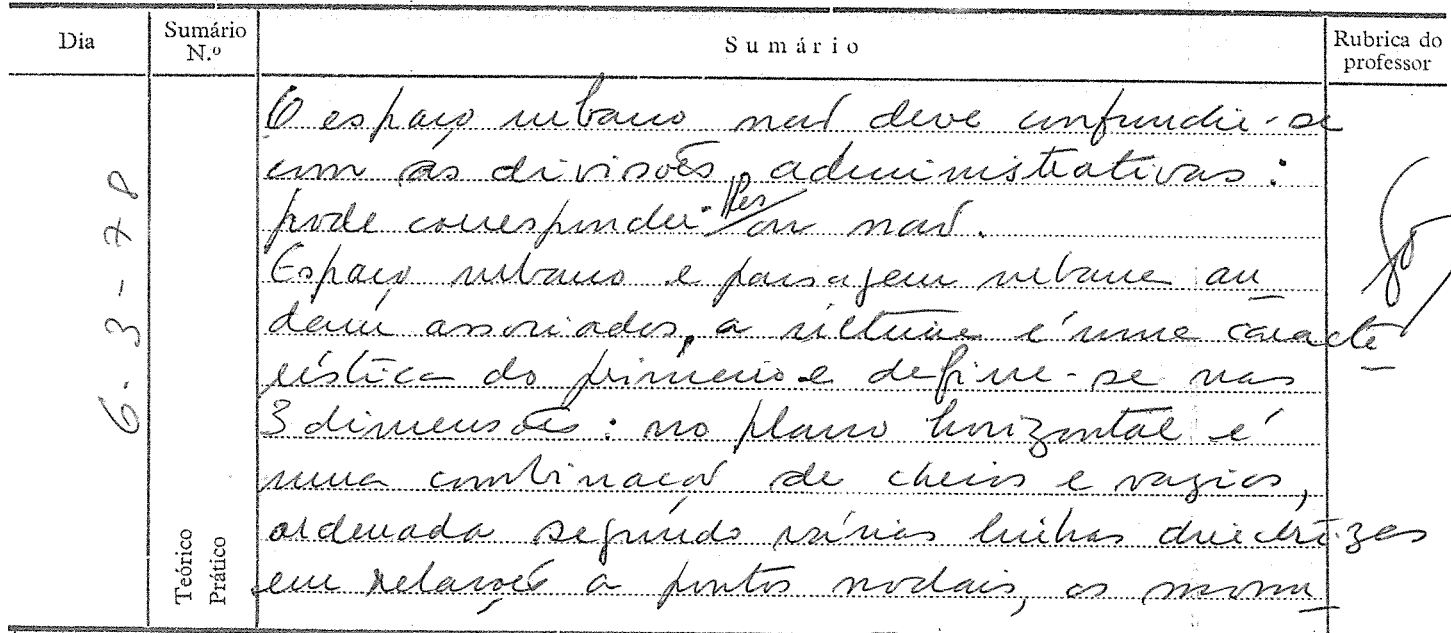 Dia
Sumário N.º
Sumário
Rubrica do professor
6-3-78
Teórico
Prático
O espaço urbano não deve confundir-se
com as divisões administrativas:
pode corresponder-lhes ou não.
Espaço urbano e paisagem urbana an
dam associados, a última é uma caracte
rística do primeiro e define-se nas
3 dimensões: no plano horizontal é
uma combinação de cheios e vazios,
ordenada segundo várias linhas directrizes
em relação a pontos nodais, os monu